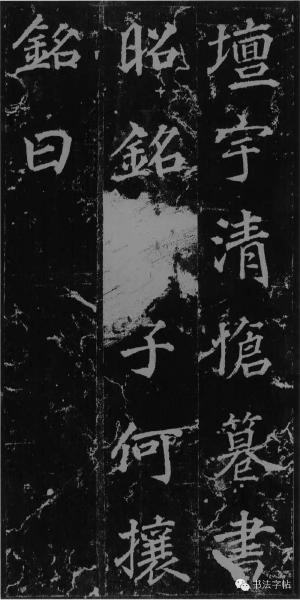 壇宇清書
昭銘子何攘
銘曰
书法字帖